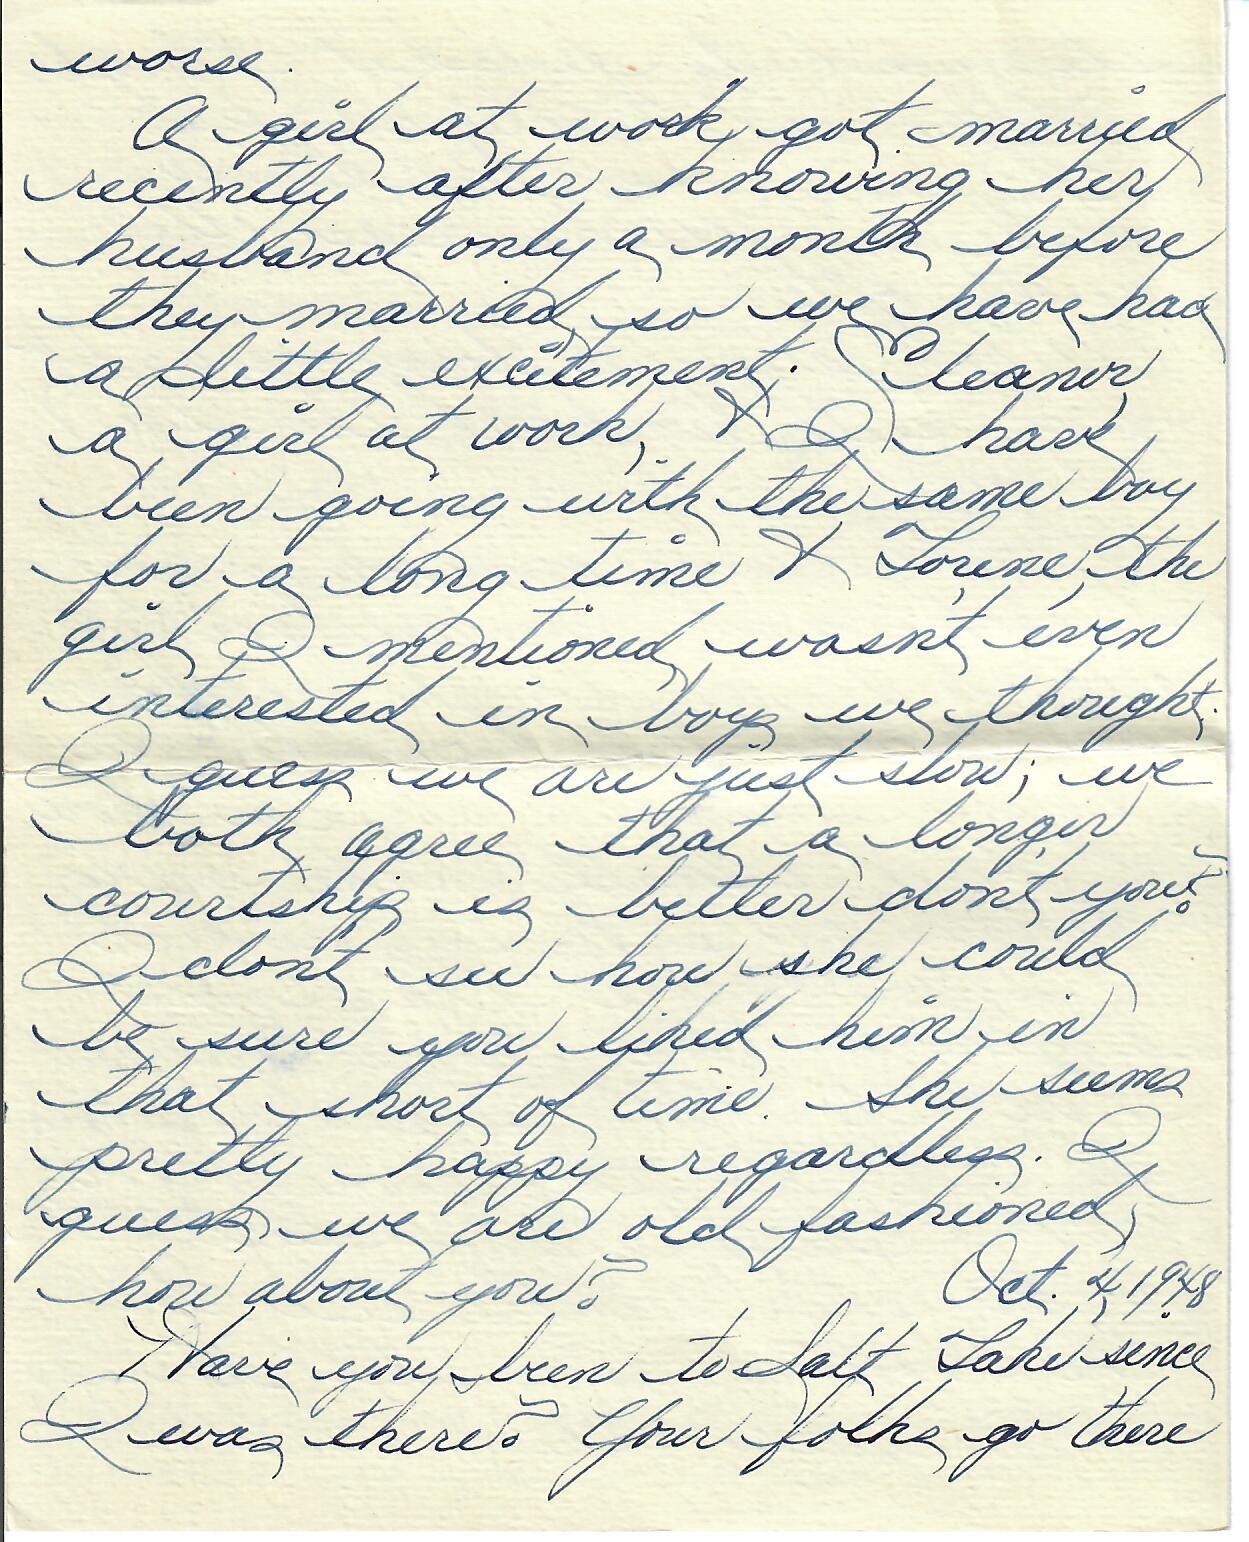 worse.
A girl at work got married
recently after knowing her
husband only a month before
they married, so we have had
a little excitement. Eleanor,
a girl at work, & I have
been going with the same boy
for a long time & Lorene, the
girl I mentioned, wasn't even
interested in boys we thought.
I guess we are just slow; we
both agree that a longer
courtship is better don't you?
I don't see how she could
be sure you liked him in
that short of time. She seems
pretty happy regardless. I
guess we are old fashioned,
how about you?
Oct. 4, 1948
Have you been to Salt Lake since
I was there? Your folks go there